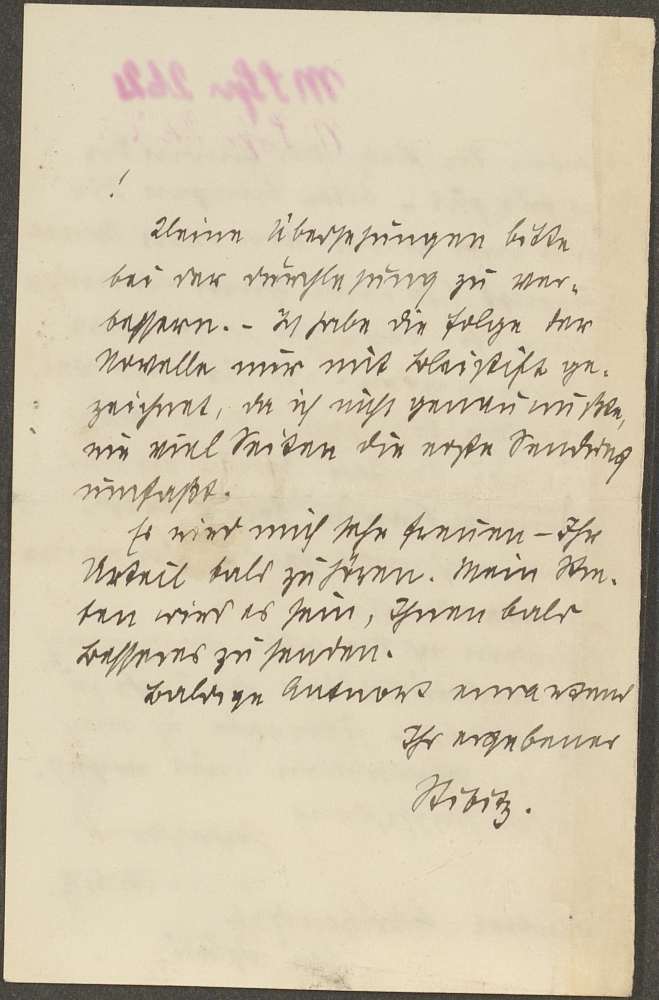 !
Kleine Übersehungen bitte
bei der Durchlesung zu ver-
bessern. - Ich habe die Folge der
Novelle nur mit Bleistift ge-
zeichnet, da ich nicht genau wußte,
wie viel Seiten die erste Sendung
umfaßt.
Es wird mich sehr freuen - Ihr
Urteil bald zu hören. Mein
wird es sein, Ihnen bald
Besseres zu senden.
Baldige Antwort erwartend
Ihr ergebener
Stibitz.